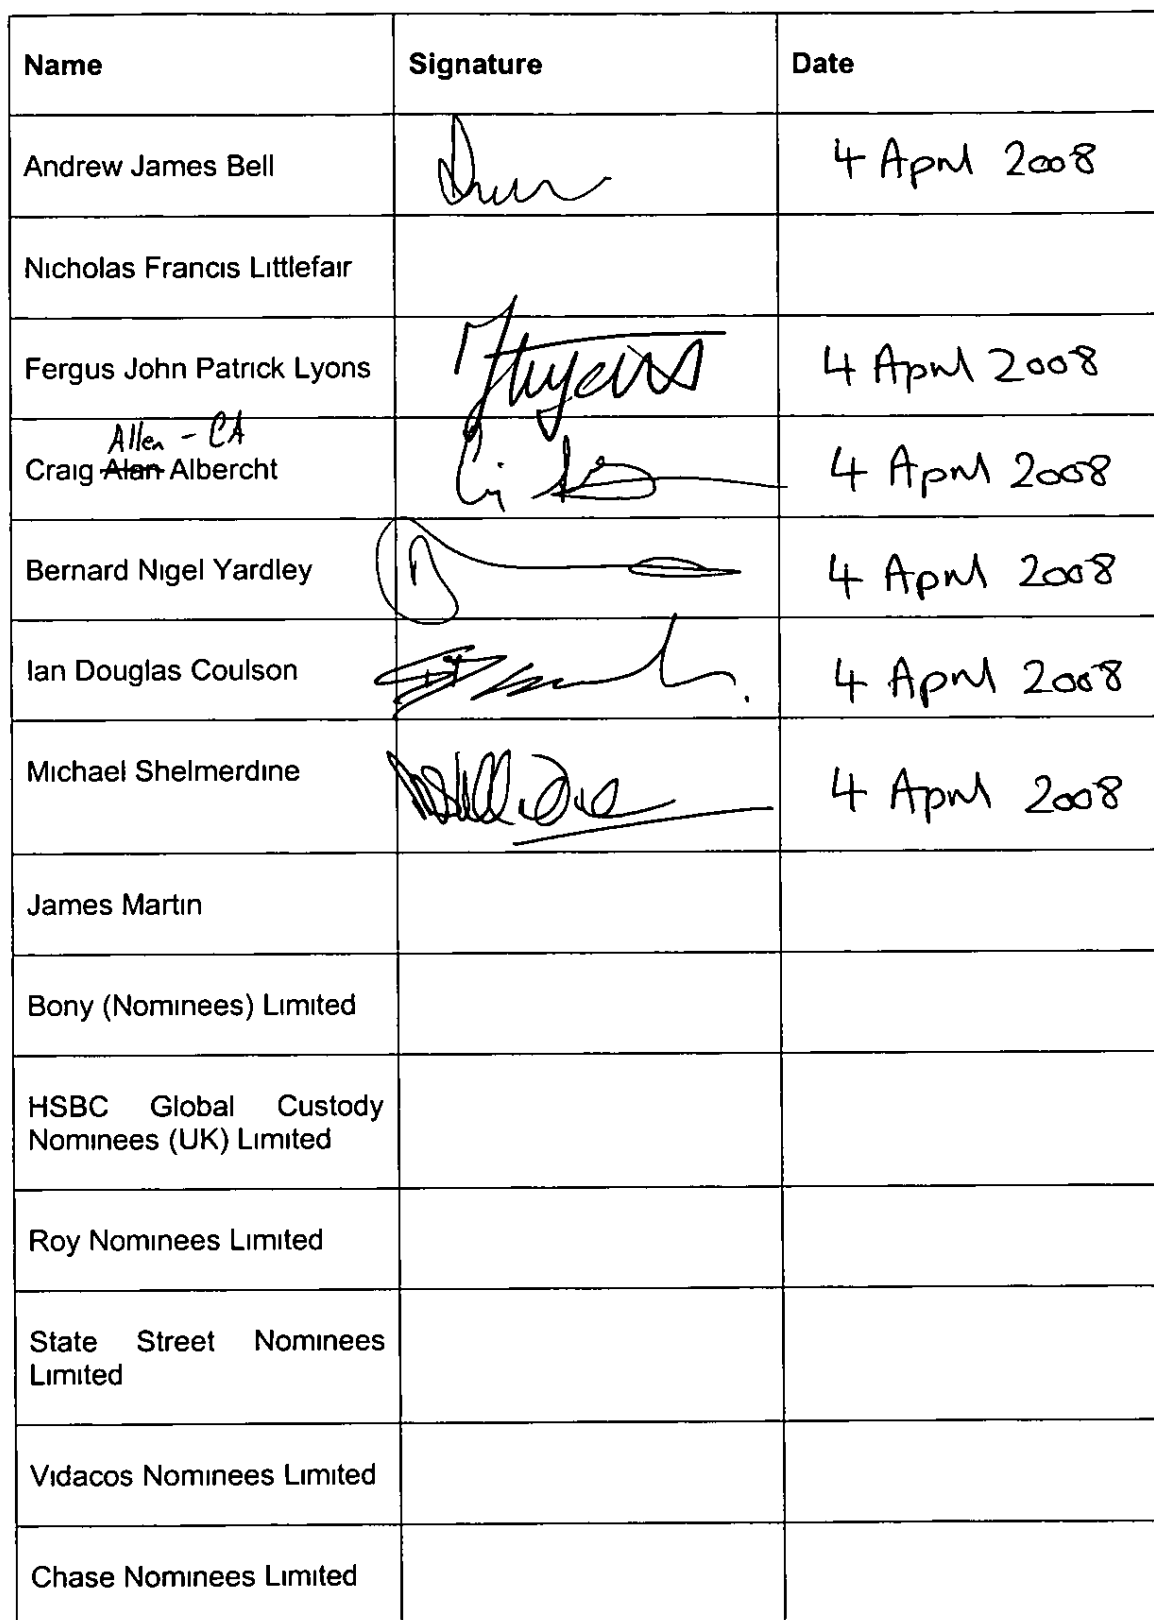 Name Signature Date
Andrew James Bell 4 April 2008
Nicholas Francis Littlefair
Fergus John Patrick Lyons 4 April 2008
Allen - CA
Craig Alan Albercht 4 April 2008
Bernard Nigel Yardley 4 April 2008
Ian Douglas Coulson 4 April 2008
Michael Shelmerdine 4 April 2008
James Martin
Bony (Nominees) Limited
HSBC Global Custody
Nominees (UK) Limited
Roy Nominees Limited
State Street Nominees
Limited
Vidacos Nominees Limited
Chase Nominees Limited